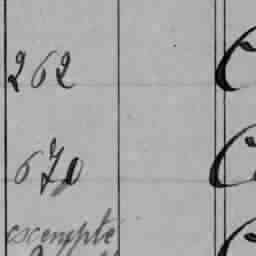 262
670
exempté